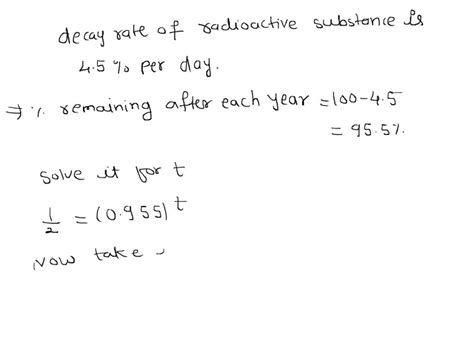 decay rate of radioactive substance is
4.5% per day.
⇒ % remaining after each year = 100-4.5
= 95.5%.
solve it for t
1/2 = (0.955)^t
Now take